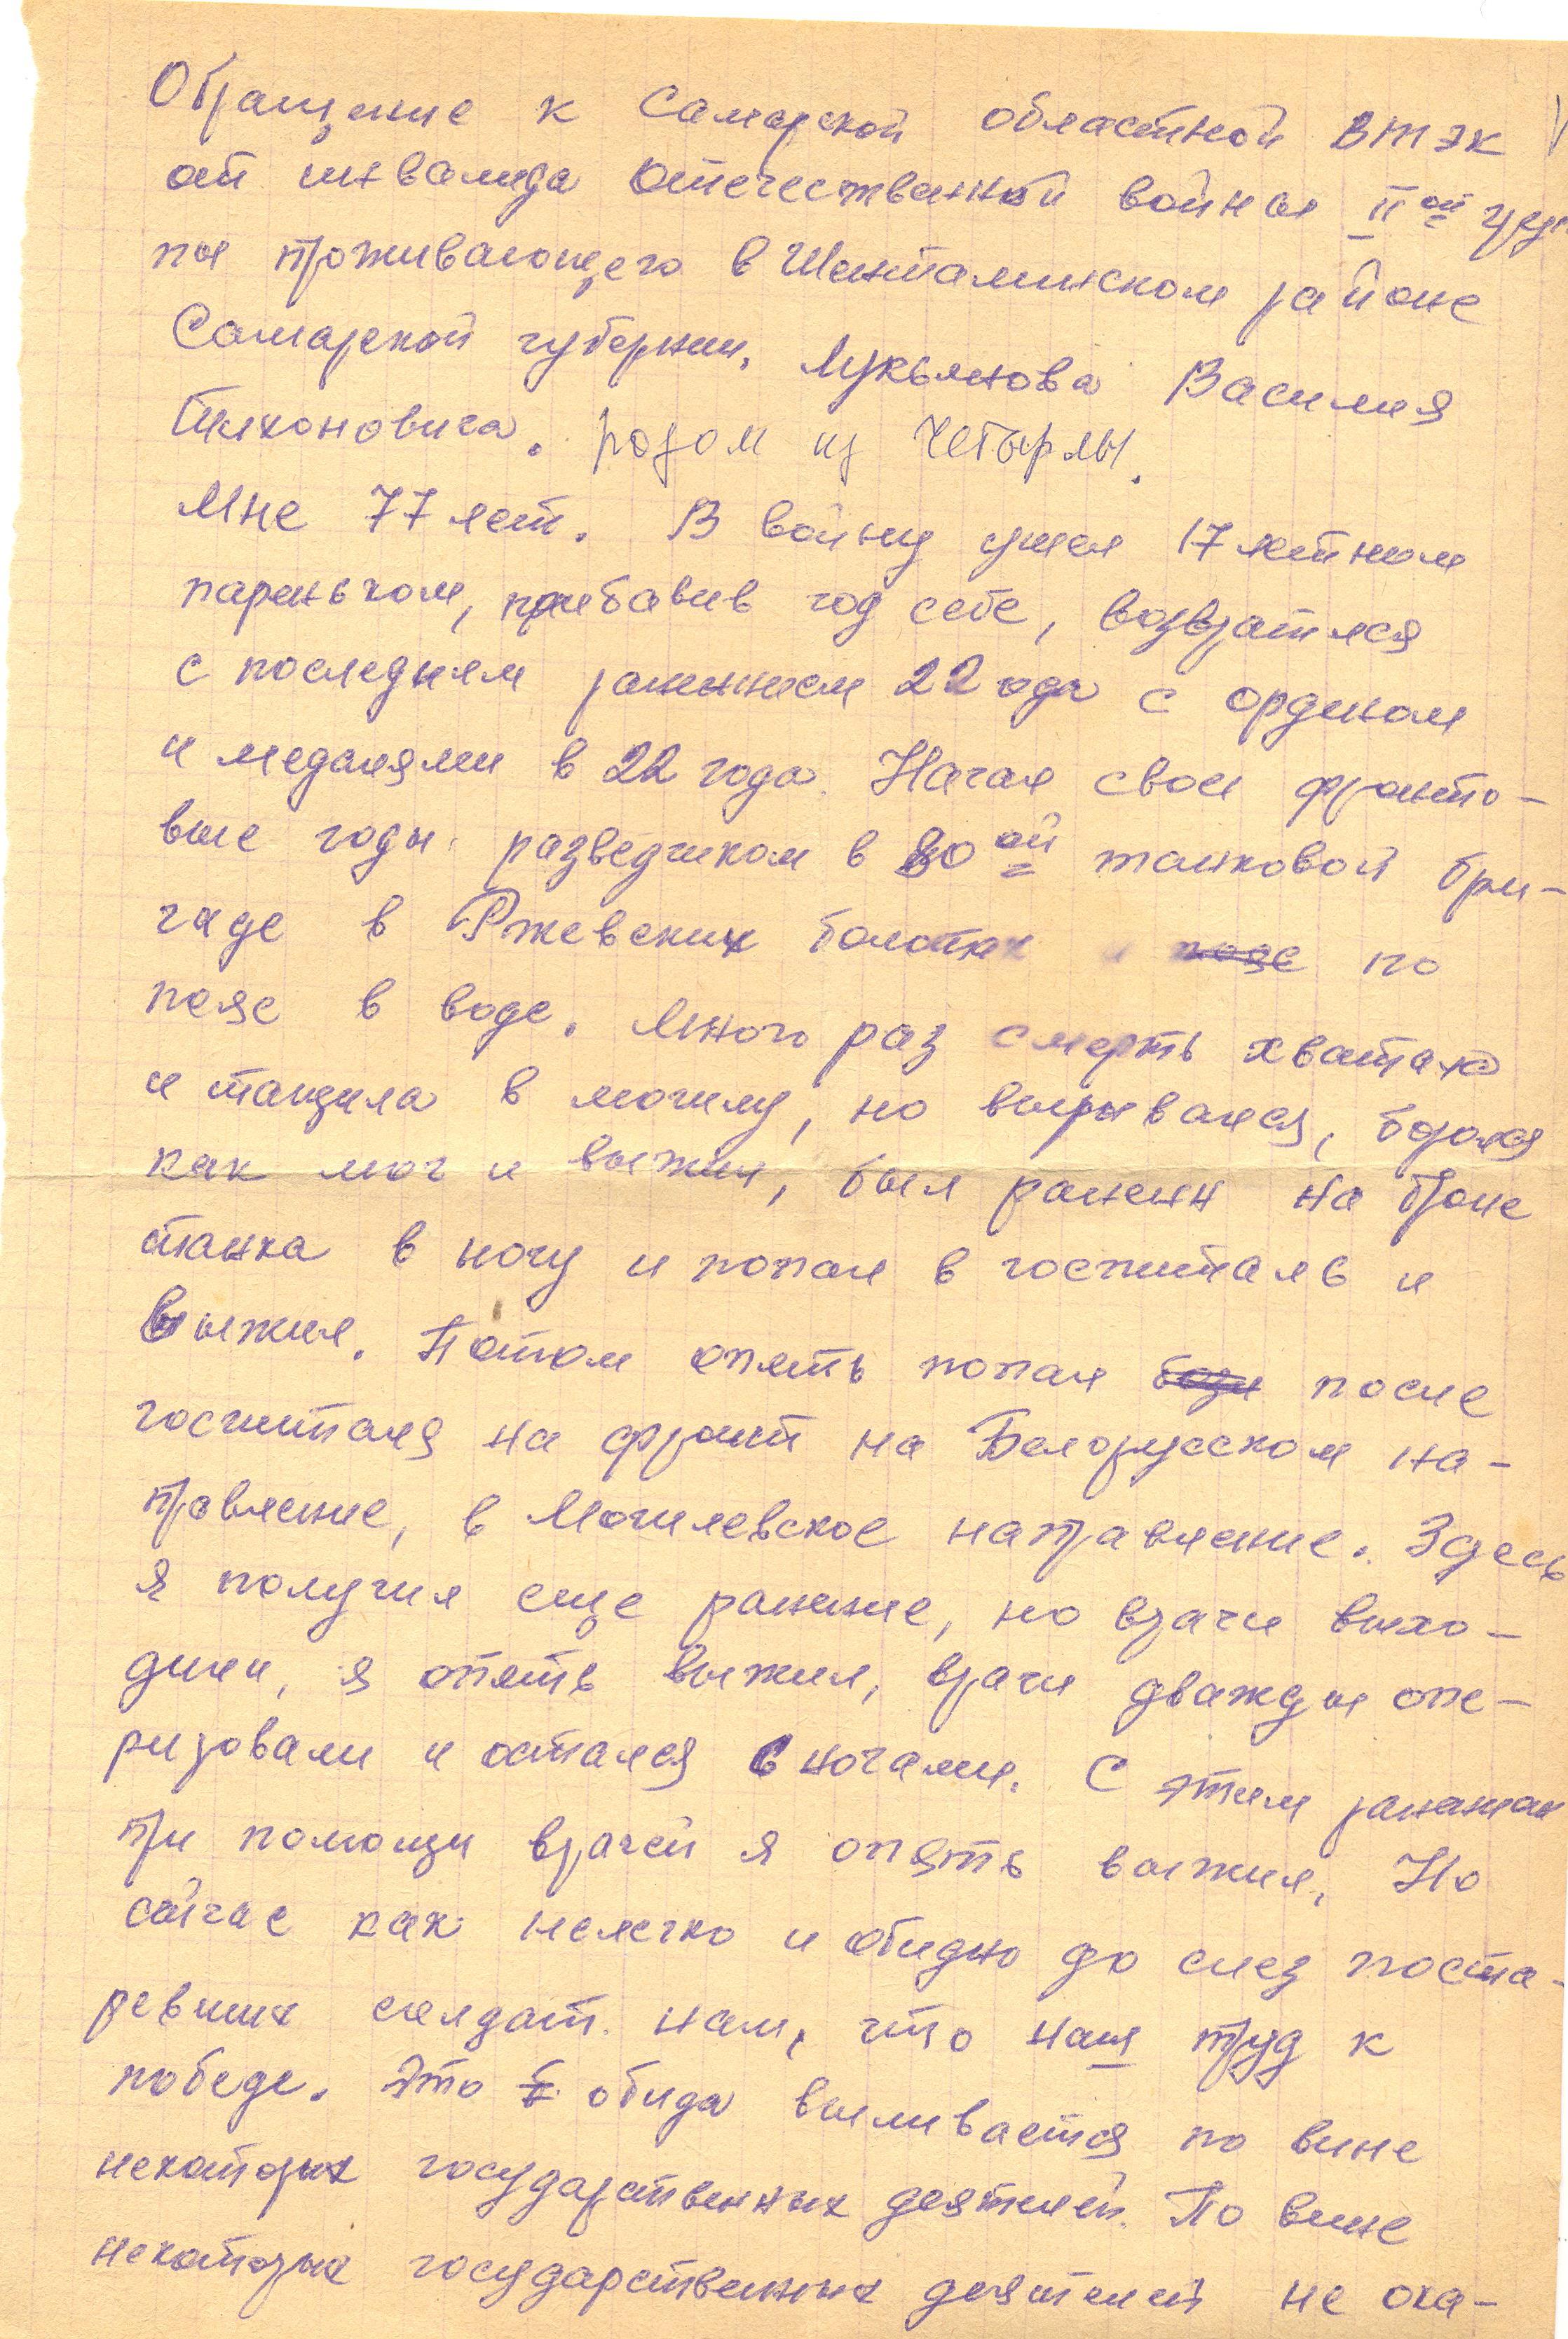 Обращение к Самарской областной ВТЭК
от инвалида Отечественной войны IIой груп
пы проживающего в Шенталинском районе
Самарской губернии, Лукьянова Василия
Тихоновича. родом из Четырлы.
Мне 77 лет. В войну ушел 17 летним
пареньком, прибавив год себе, возвратился
с последнем ранением 22 года с орденом
и медалями в 22 года. Начал свои фронто-
вые годы разведчиком в 80ой танковой бри-
гаде в Ржевских болотах и поясе по
пояс в воде. Много раз смерть хватала
и тащила в могилу, но вырывался, боролся
как мог и выжил, был ранен на броне
танка в ногу и попал в госпиталь и
выжил. Потом опять попал после
госпиталя на фронт на Белорусском на-
правление, в Могилевское направление. Здесь
я получил еще ранение, но врачи выхо-
дили, я опять выжил, врачи дважды опе-
рировали и остался с ногами. С этим
при помощи врачей я опять выжил, Но
сейчас как нелегко и обидно до слез поста-
ревших солдат нам, что наш труд к
победе. Это обида выливается по вине
некоторых государственных деятелей. По вине
некоторых государственных деятелей не ока-